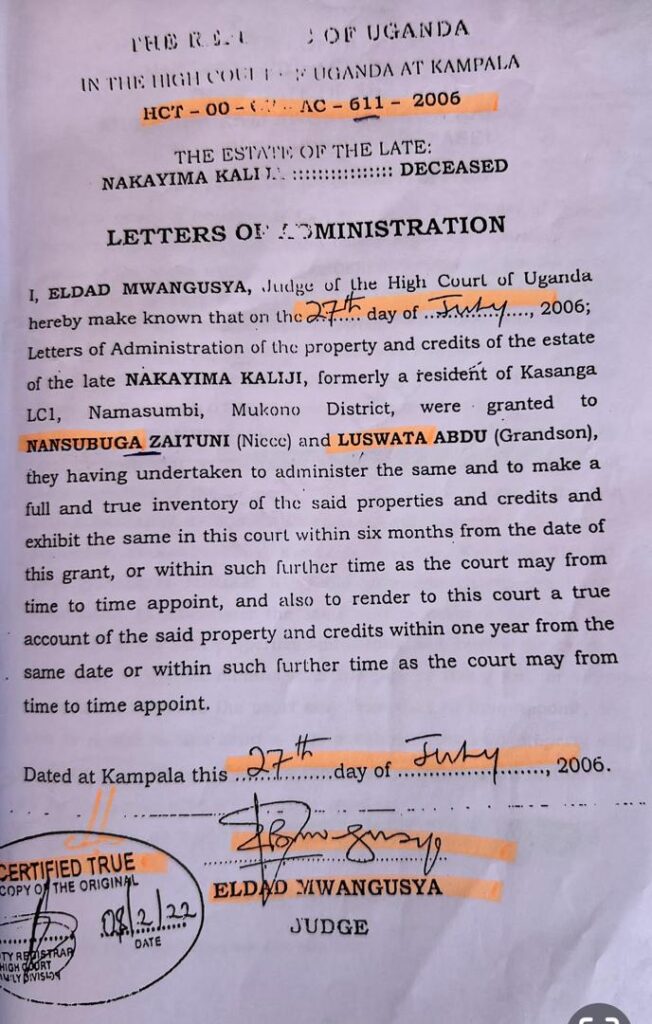 THE OF UGANDA
IN THE HIGH COURT OF UGANDA AT KAMPALA
HCT - 00 - AC - 611 - 2006
THE ESTATE OF THE LATE:
NAKAYIMA :::::::::::::::: DECEASED
LETTERS OF ADMINISTRATION
I, ELDAD MWANGUSYA, Judge of the High Court of Uganda
hereby make known that on the 27th day of July, 2006;
Letters of Administration of the property and credits of the estate
of the late NAKAYIMA KALIJI, formerly a resident of Kasanga
LC1, Namasumbi, Mukono District, were granted to
NANSUBUGA ZAITUNI (Niece) and LUSWATA ABDU (Grandson),
they having undertaken to administer the same and to make a
full and true inventory of the said properties and credits and
exhibit the same in this court within six months from the date of
this grant, or within such further time as the court may from
time to time appoint, and also to render to this court a true
account of the said property and credits within one year from the
same date or within such further time as the court may from
time to time appoint.
Dated at Kampala this 27th day of July, 2006.
ELDAD MWANGUSYA
JUDGE
CERTIFIED TRUE
COPY OF THE ORIGINAL
08/2/22
DATE
TY REGISTRAR
HIGH COURT
DIVISION